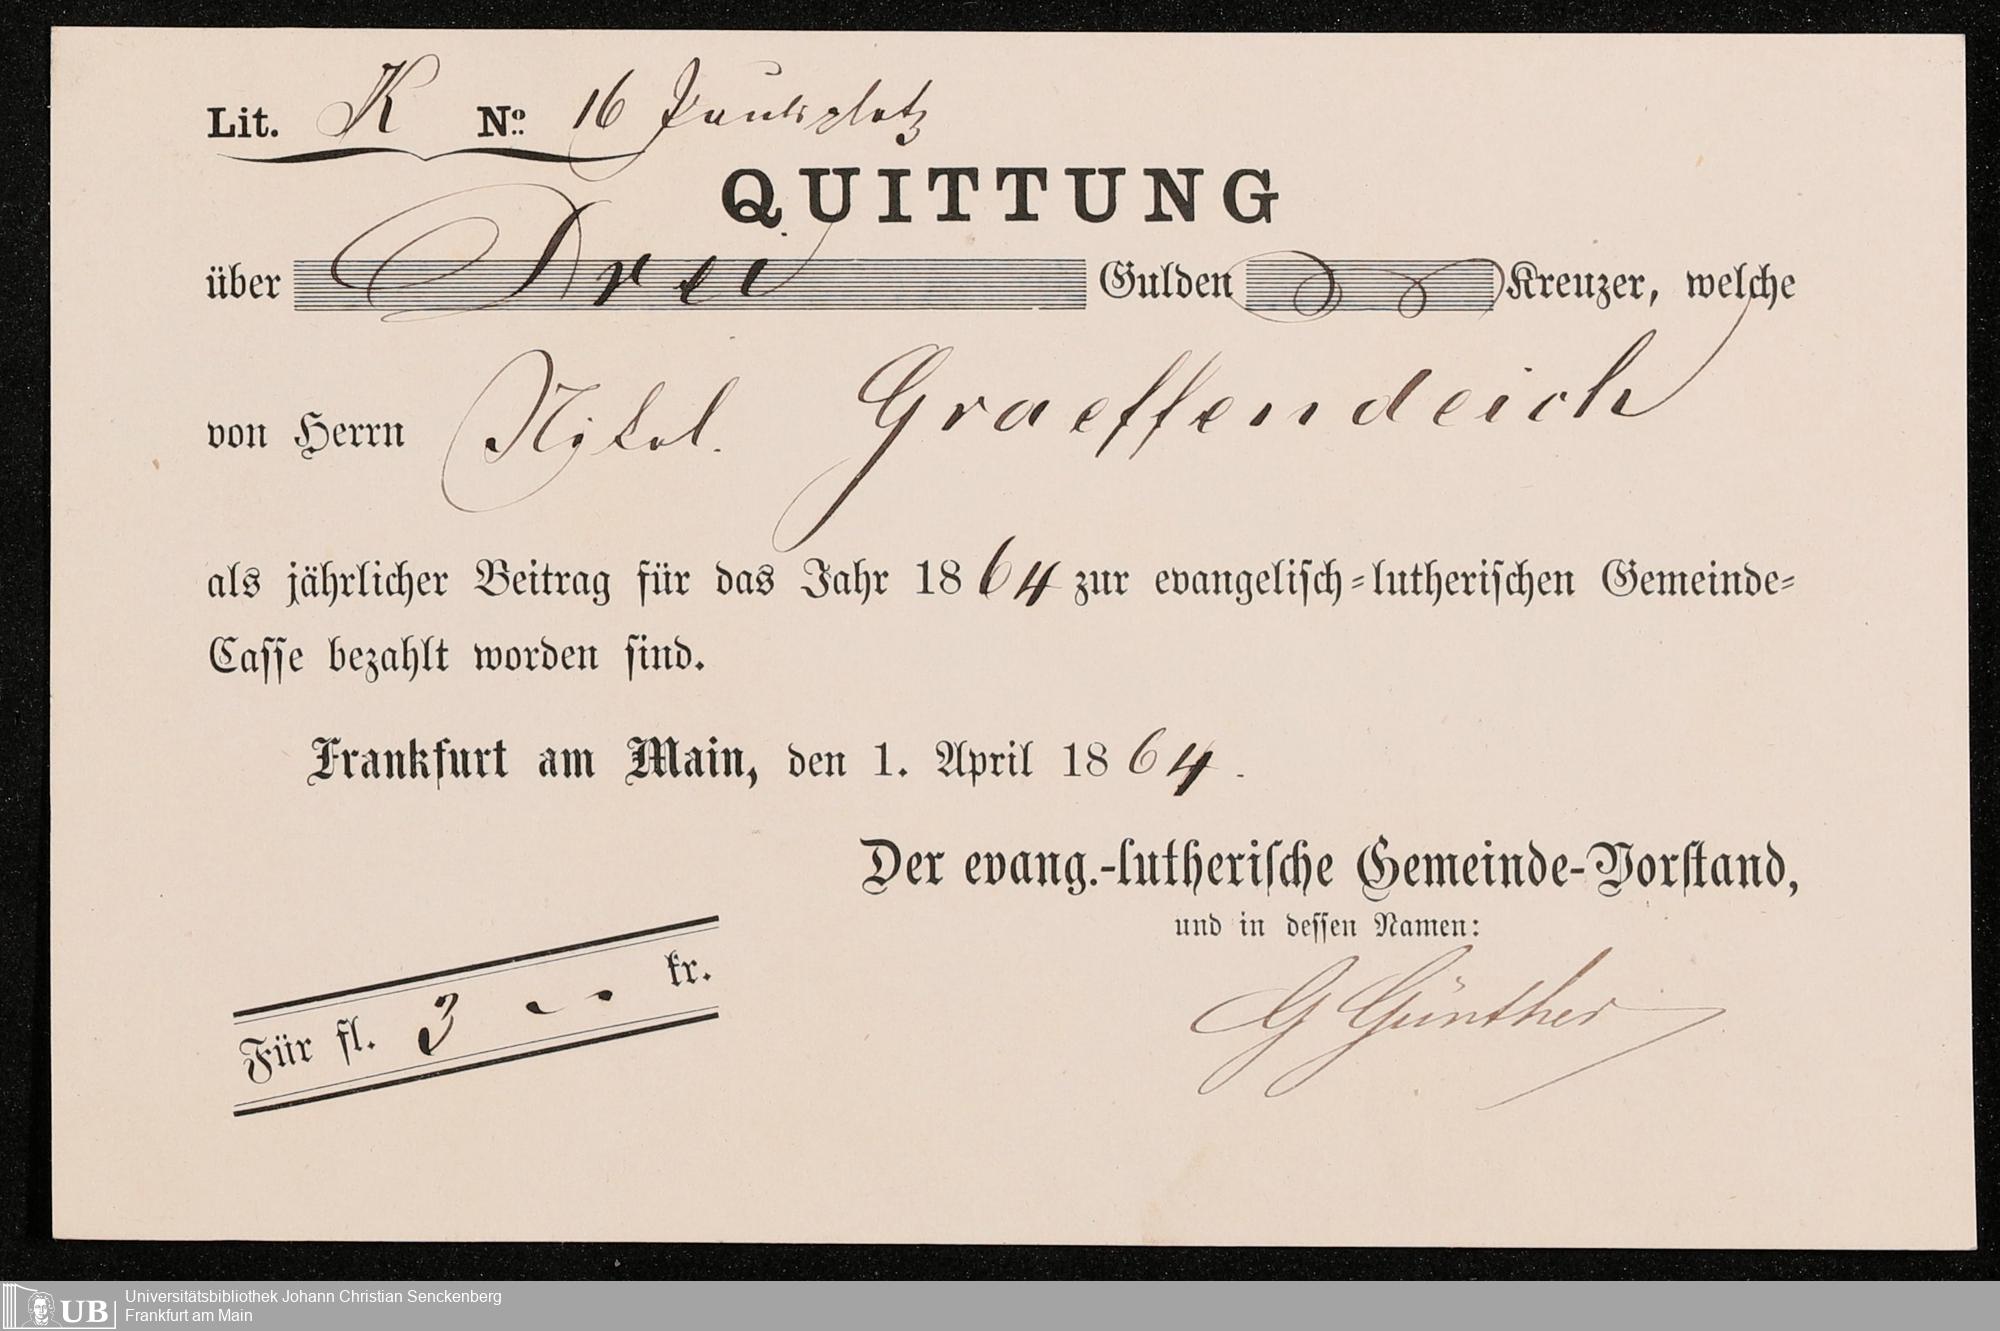 Lit. K No. 16 Paulsplatz
QUITTUNG
über Drei Gulden Kreuzer, welche
von Herrn Nikol. Graeffendeich
als jährlicher Beitrag für das Jahr 1864 zur evangelisch-lutherischen Gemeinde-
Casse bezahlt worden sind.
Frankfurt am Main, den 1. April 1864.
Der evang.-lutherische Gemeinde-Vorstand,
und in dessen Namen:
G Günther
Für fl. 3 -- kr.
UB Universitätsbibliothek Johann Christian Senckenberg
Frankfurt am Main